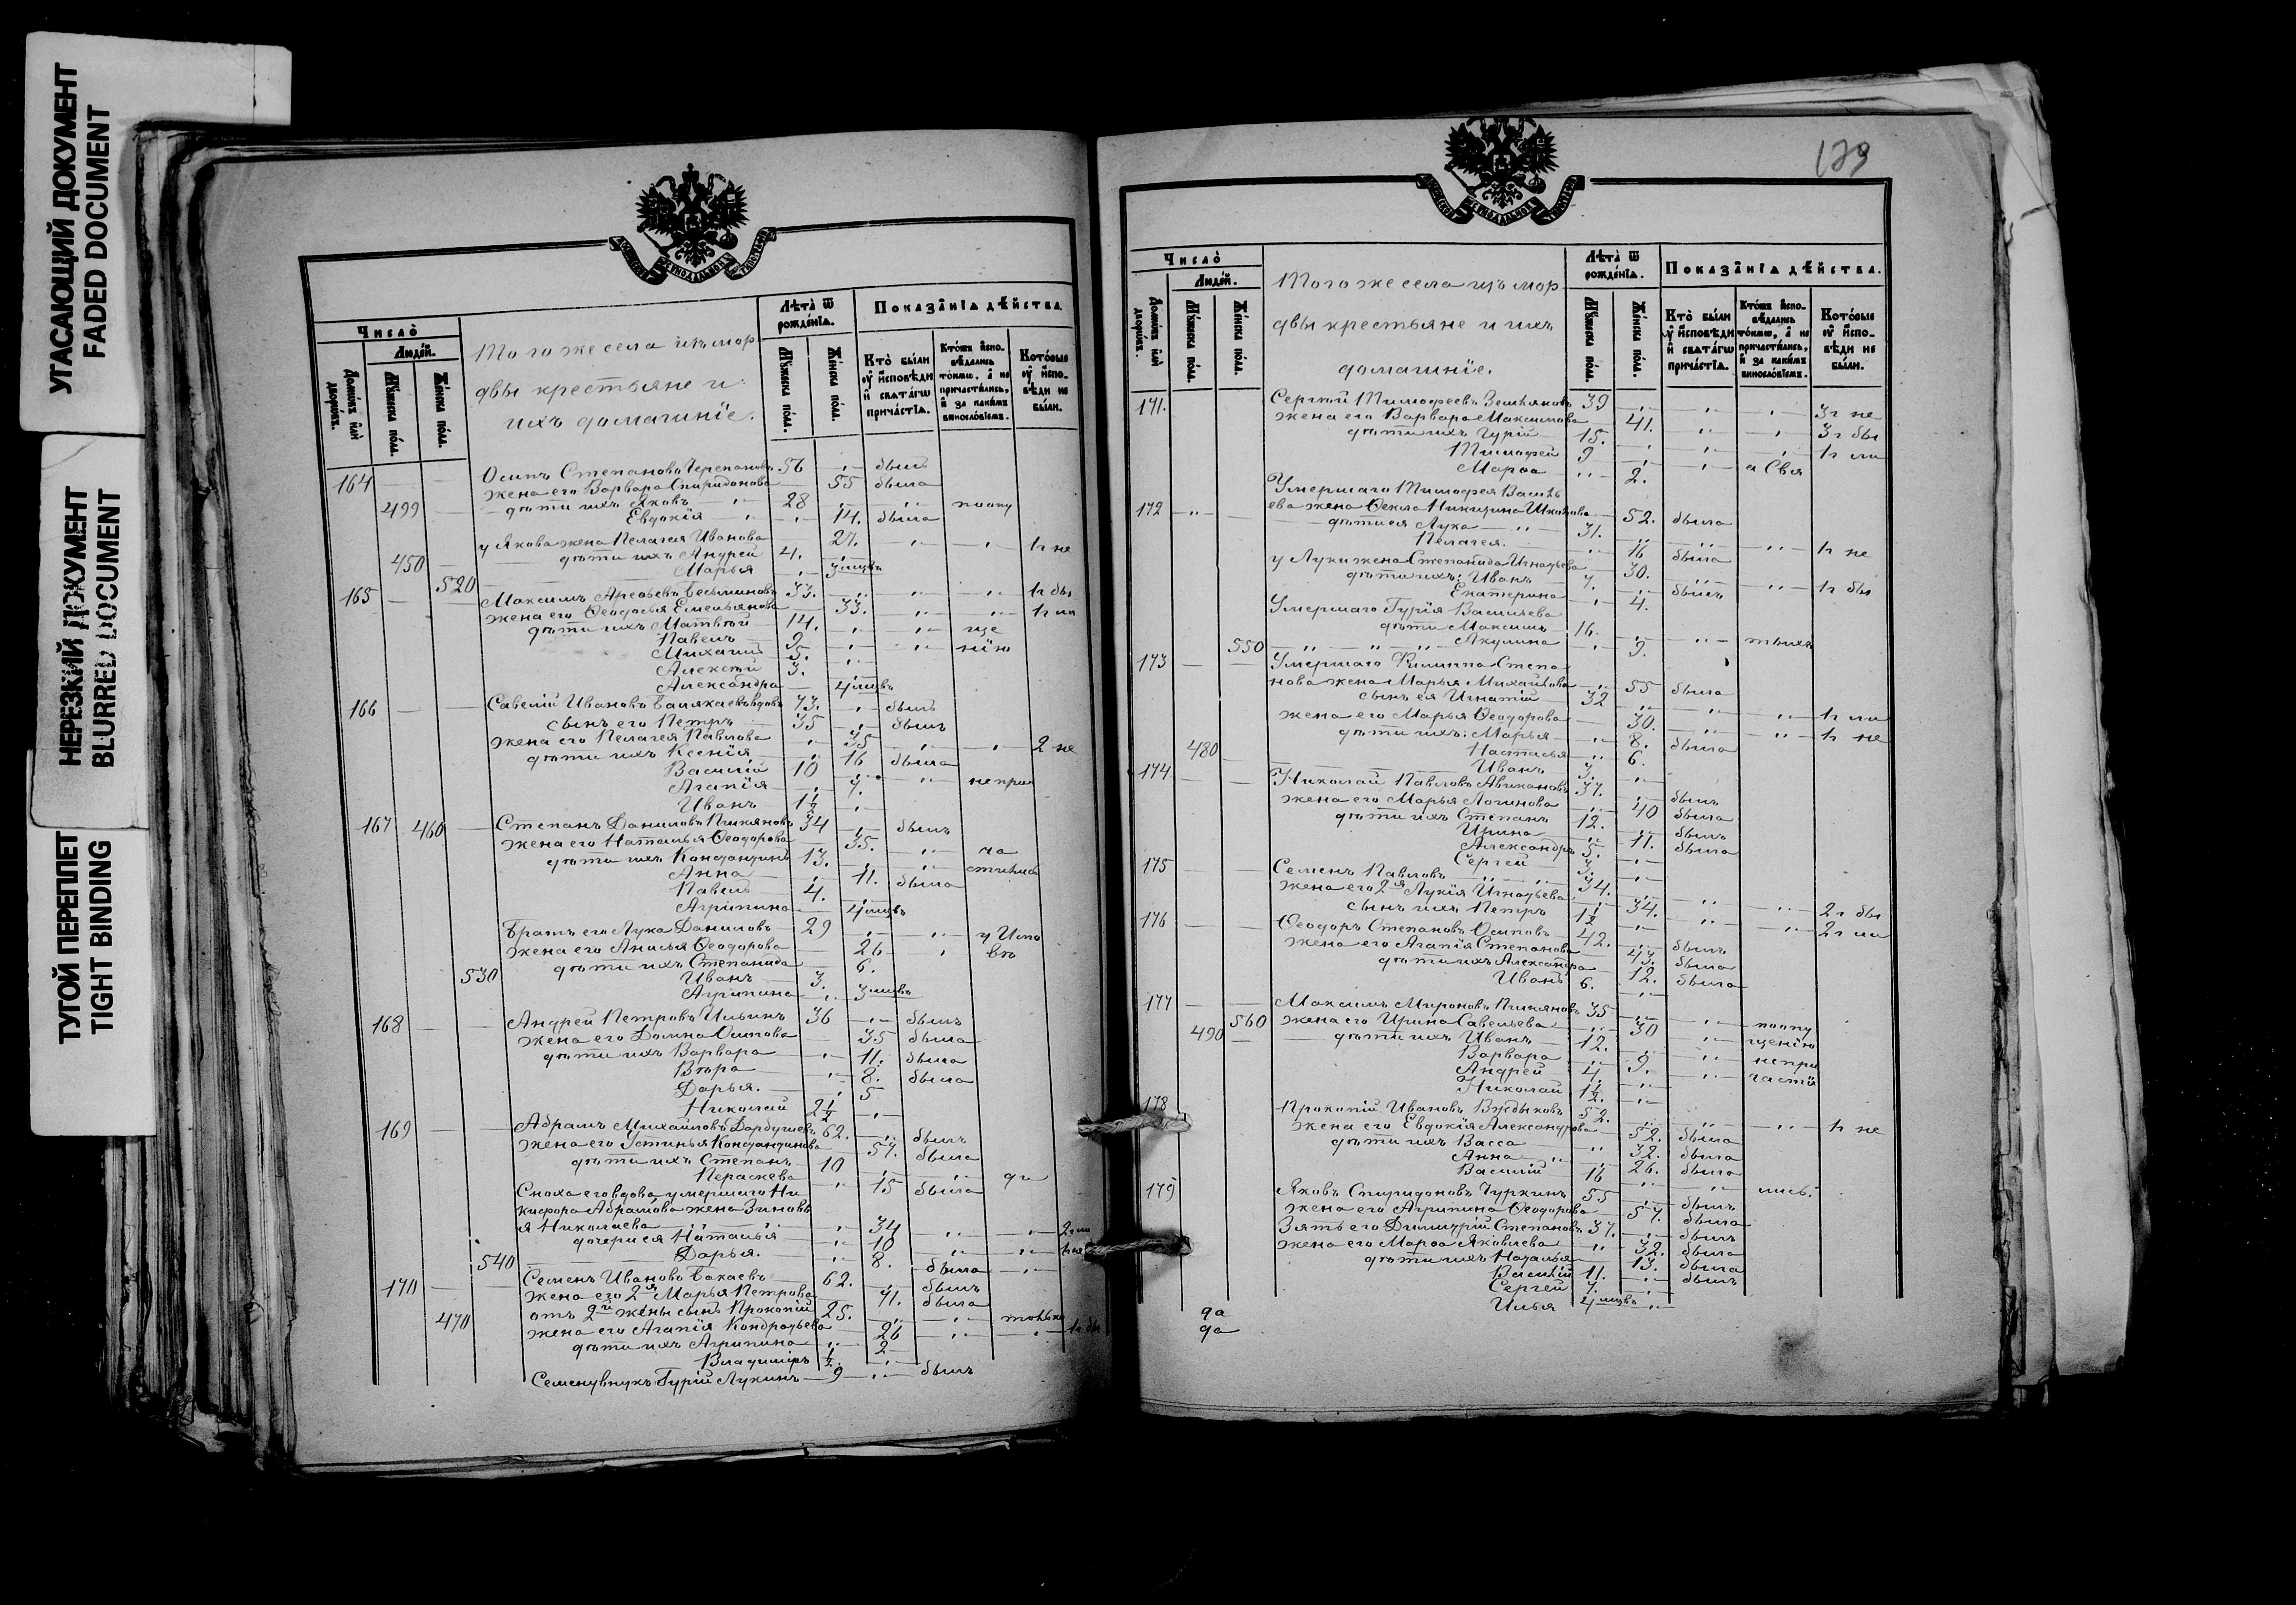 УГАСАЮЩИЙ ДОКУМЕНТ
FADED DOCUMENT
НЕРЕЗКИЙ ДОКУМЕНТ
BLURRED DOCUMENT
ТУГОЙ ПЕРЕПЛЕТ
TIGHT BINDING
Число̀
Людей.
Домовъ или дворовъ.
Мужеска полу.
Женска полу.
Того же села изъ мор
двы крестьяне и
ихъ домашніе.
Лѣта ѿ рожденїѧ.
Мужеска полу.
Женска полу.
Показанїѧ дѣйства.
Кто были у исповѣди и свѧтагѡ причастїѧ.
Ктожъ исповѣдались токмѡ, а не причастились, и за какимъ винословїемъ.
Которые у исповѣди не были.
164 Осипъ Степановъ Черепановъ 56 былъ
жена его Варвара Спиридонова 55 была
499 дѣти ихъ Яковъ 28 по опу
Евдокія 14. была
у Якова жена Пелагея Иванова 27. 1 г не
450 дѣти ихъ Андрей 4.
Марья 3 мцвъ
165 520 Максимъ Арефьевъ 33. 1 г бы
жена его Ѳеодосья Емельянова 33. 1 г ли
дѣти ихъ Матвѣй 14. ще
Павелъ 9 нію
Михаилъ 5.
Алексѣй 3.
Александра 4 мцвъ
166 Савелій Ивановъ вдовъ 73. былъ
сынъ его Петръ 35 былъ
жена его Пелагея Павлова 35 2 не
дѣти ихъ Ксенія 16 была
Василій 10 не при
Агапія 7.
Иванъ 1½
167 460 Степанъ Даниловъ Пикяновъ 34 былъ
жена его Наталья Ѳеодорова 35. ча
дѣти ихъ Константинъ 13. стились
Анна 11. была
Павелъ 4.
Агрипина 4 мцвъ
Братъ его Лука Даниловъ 29 у Испо
жена его Анисья Ѳеодорова 26 вѣ
дѣти ихъ Степанида 6.
530 Иванъ 3.
Агрипина 3 мцвъ
168 Андрей Петровъ Ильинъ 36 былъ
жена его Домна Осипова 35 была
дѣти ихъ Варвара 11. была
Вѣра 8. была
Дарья. 5
Николай 2½
169 Абрамъ Михайловъ 62. былъ
жена его Устинья Константинова 57. была
дѣти ихъ Степанъ 10 ди
Параскева 15 была
Сноха его вдова умершаго Ни
кифора Абрамова жена Зиновь
я Николаева 34 2 г ли
дочери ея Наталья 10
540 Дарья. 8. была
170 Семенъ Ивановъ Бакаевъ 62. былъ
жена его 2я Марья Петрова 41. была
470 отъ 2й жены сынъ Прокопій 25. только
жена его Агапія Кондратьева 26 1 г бы
дѣти ихъ Агрипина 2
Владиміръ ½.
Семену внукъ Гурій Лукинъ 9 былъ
179
Число̀
Людей.
Домовъ или дворовъ.
Мужеска полу.
Женска полу.
Того же села изъ мор
двы крестьяне и ихъ
домашніе.
Лѣта ѿ рожденїѧ.
Мужеска полу.
Женска полу.
Показанїѧ дѣйства.
Кто были у исповѣди и свѧтагѡ причастїѧ.
Ктожъ исповѣдались токмѡ, а не причастились, и за какимъ винословїемъ.
Которые у исповѣди не были.
171. Сергѣй Тимофеевъ Земляковъ 39 3 г не
жена его Варвара Максимова 41. 3 г бы
дѣти ихъ Гурій 15. 1 г ли
Тимофей 9 а Свя
Марѳа 2.
Умершаго Тимофея Василь
172 ева жена Ѳекла Никитина 52. была
дѣти ея Лука 31. 1 г не
Пелагея. 16 была
у Луки жена Степанида Игнатьева 30. 1 г бы
дѣти ихъ: Иванъ 7. былъ
Екатерина 4.
Умершаго Гурія Васильева
дѣти Максимъ 16. тыхъ
550 Акулина 9.
173 Умершаго Филиппа Степа
нова жена Марья Михайлова 55 была
сынъ ея Игнатій 32 1 г ли
жена его Марья Ѳеодорова 30. 1 г не
дѣти ихъ: Марья 8. была
480 Настасья 6.
Иванъ 3.
174 Николай Павловъ 37. былъ
жена его Марья Логинова 40 была
дѣти ихъ Степанъ 12. былъ
Ирина 11. была
Александръ 5.
Сергей 3.
175 Семенъ Павловъ 34. 2 г бы
жена его 2я Лукія Игнатьева 34. 2 г ли
сынъ ихъ Петръ 1½
176 Ѳеодоръ Степановъ Осиповъ 42. былъ
жена его Агапія Степанова 43. была
дѣти ихъ Александра 12. была
Иванъ 6.
177 Максимъ Мироновъ Пикяновъ 35 по опу
490 560 жена его Ирина Савельева 30 щенію
дѣти ихъ Иванъ 12. не при
Варвара 9. частія
Андрей 4
Николай 1½.
178 Прокопій Ивановъ 52. 1 г не
жена его Евдокія Александрова 52. была
дѣти ихъ Васса 32. была
Анна 26. была
Василій 16 лись.
179 Яковъ Спиридоновъ Чуркинъ 55 былъ
жена его Агрипина Ѳеодорова 57. была
Зять его Димитрій Степановъ 37. былъ
жена его Марѳа Яковлева 32. была
дѣти ихъ Наталья 13. была
Василій 11. былъ
Сергей 7.
Илья 4 мцвъ
да
да